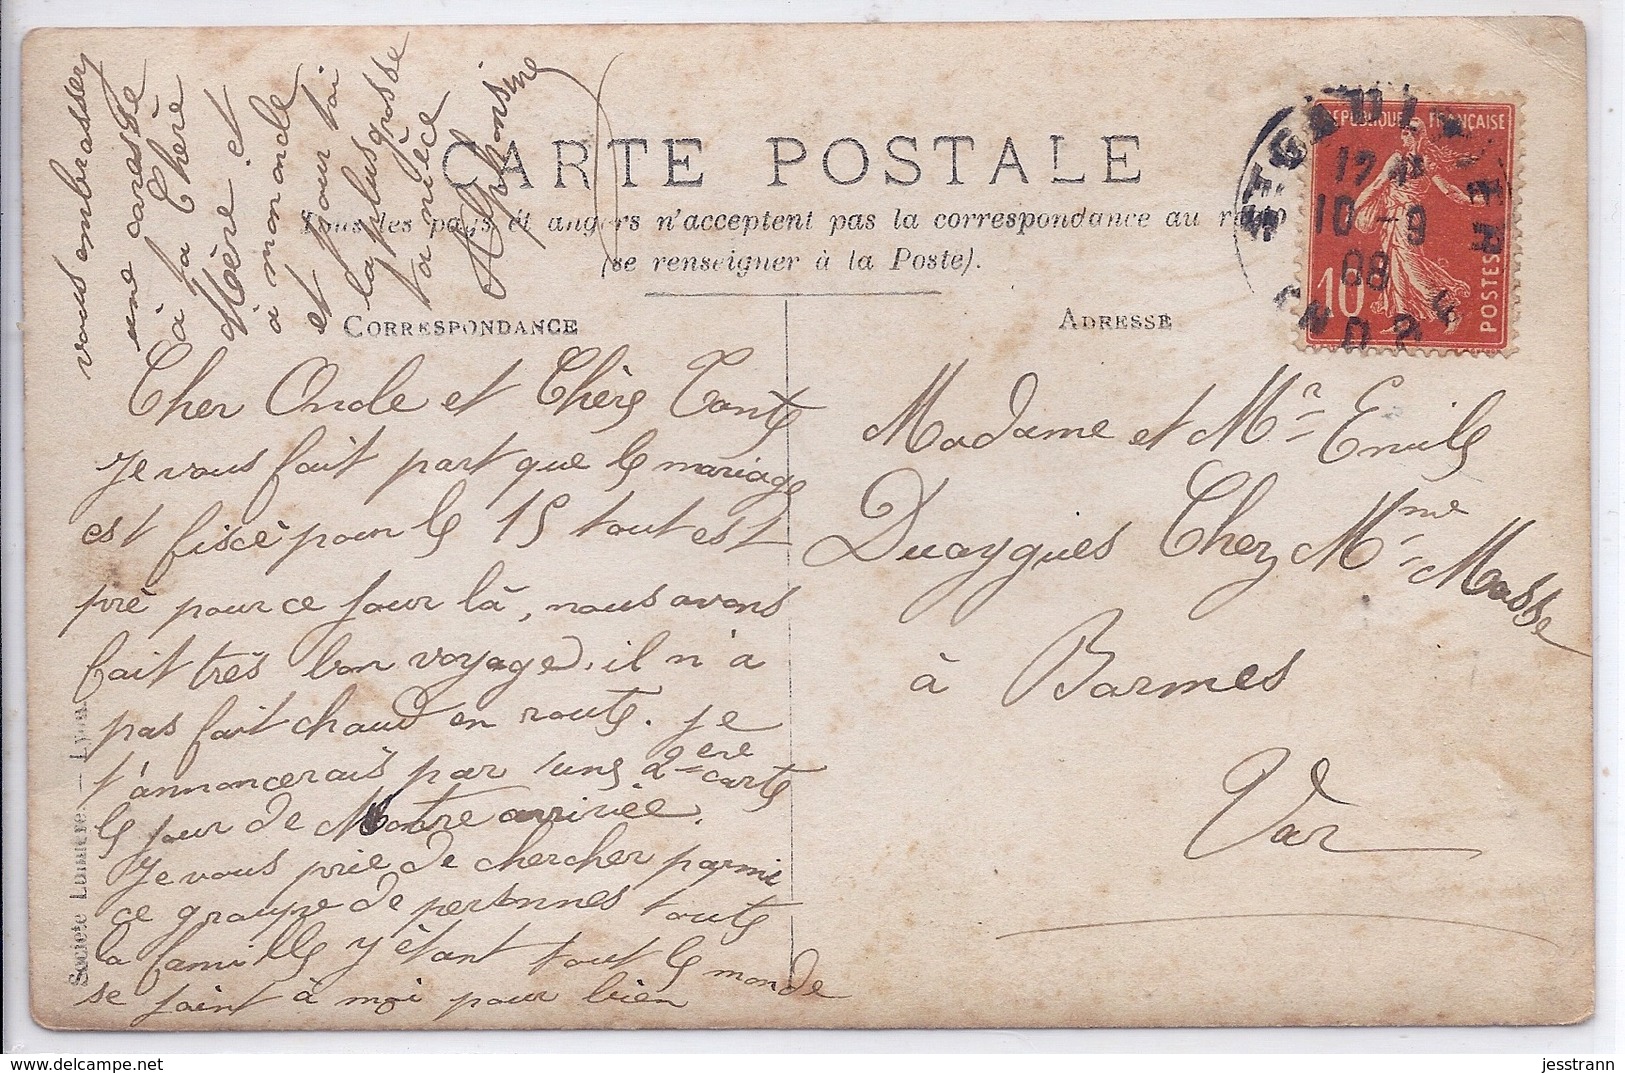 CARTE POSTALE
Tous les pays étrangers n'acceptent pas la correspondance au recto
(se renseigner à la Poste).
CORRESPONDANCE
ADRESSE
Cher Oncle et Chère Tante
Je vous fait part que le mariage
est fiscé pour le 15 tout est
pré pour ce jour là, nous avons
fait très bon voyage, il n'a
pas fait chaud en route. je
t'annoncerais par une 2ère carte
le jour de Notre arrivée.
Je vous prie de chercher parmi
ce groupe de personnes toute
la famille y étant tout le monde
se joint à moi pour bien
vous embrasser
une caresse
à la Chère
Mère et
à monde
et pour toi
la plus grosse
ta nièce
Alphonsine
Madame et Mr Emile
Duaygues Chez Mme Masse
à Barmes
Var
REPUBLIQUE FRANÇAISE
10
POSTES
10 - 9
08
Société Lumière — Lyon
jesstrann